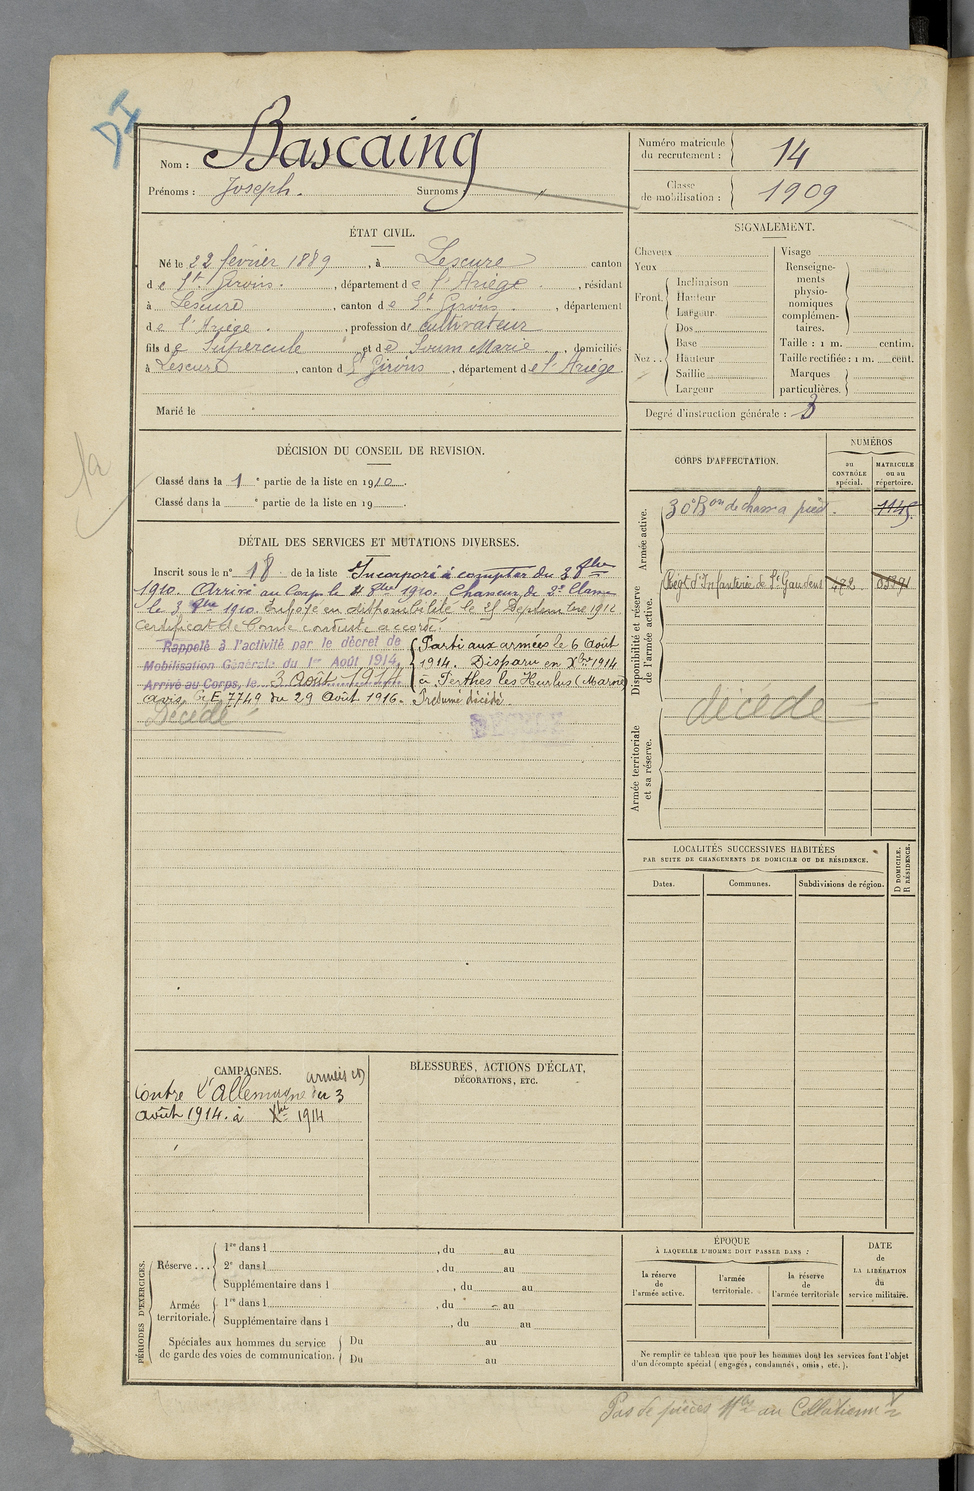 DI
Nom : Bascaing
Prénoms : Joseph. Surnoms :
Numéro matricule du recrutement : 14
Classe de mobilisation : 1909
ÉTAT CIVIL.
Né le 22 février 1889, à Lescure canton
de St. Girons., département de l'Ariège, résidant
à Lescure, canton de St Girons, département
de l'Ariège., profession de cultivateur
fils de Supercule et de Soum Marie, domiciliés
à Lescure, canton d St Girons, département de l'Ariège.
Marié le
SIGNALEMENT.
Cheveux
Yeux
Front. Inclinaison
Hauteur
Largeur
Nez .. Dos
Base
Hauteur
Saillie
Largeur
Visage
Renseignements physionomiques complémentaires.
Taille : 1 m. centim.
Taille rectifiée : 1 m. cent.
Marques particulières.
Degré d'instruction générale : 3
DÉCISION DU CONSEIL DE REVISION.
Classé dans la 1e partie de la liste en 1910.
Classé dans la e partie de la liste en 19 .
CORPS D'AFFECTATION.
NUMÉROS
au CONTRÔLE spécial.
MATRICULE ou au répertoire.
Armée active.
30e Bon de chass à pied. 1145
Disponibilité et réserve de l'armée active.
Régt d'Infanterie de St Gaudens
décédé
Armée territoriale et sa réserve.
DÉTAIL DES SERVICES ET MUTATIONS DIVERSES.
Inscrit sous le n° 18 de la liste Incorporé à compter du 3 8bre
1910. Arrivé au Corps le 4 8bre 1910. Chasseur de 2e Classe
le 3 8bre 1910. Envoyé en disponibilité le 25 Septembre 1912
Certificat de bonne conduite accordé.
Rappelé à l'activité par le décret de
Mobilisation Générale du 1er Août 1914.
Arrivé au Corps, le 3 Août 1914
Parti aux armées le 6 Août
1914. Disparu en Xbre 1914
à Perthes les Hurlus (Marne)
avis F 7749 du 29 Août 1916. Présumé décédé.
Décédé
DÉCÉDÉ
LOCALITÉS SUCCESSIVES HABITÉES
PAR SUITE DE CHANGEMENTS DE DOMICILE OU DE RÉSIDENCE.
Dates. Communes. Subdivisions de région.
D DOMICILE. R RÉSIDENCE.
CAMPAGNES.
Contre l'Allemagne armées du 3
Août 1914. à Xbre 1914
BLESSURES, ACTIONS D'ÉCLAT,
DÉCORATIONS, ETC.
PÉRIODES D'EXERCICES.
Réserve ... 1re dans l , du au
2e dans l , du au
Supplémentaire dans l , du au
Armée territoriale. 1re dans l , du au
Supplémentaire dans l , du au
Spéciales aux hommes du service de garde des voies de communication. Du au
Du au
ÉPOQUE
À LAQUELLE L'HOMME DOIT PASSER DANS :
la réserve de l'armée active.
l'armée territoriale.
la réserve de l'armée territoriale
DATE de LA LIBÉRATION du service militaire.
Ne remplir ce tableau que pour les hommes dont les services font l'objet
d'un décompte spécial (engagés, condamnés, omis, etc.).
Pas de pièces au